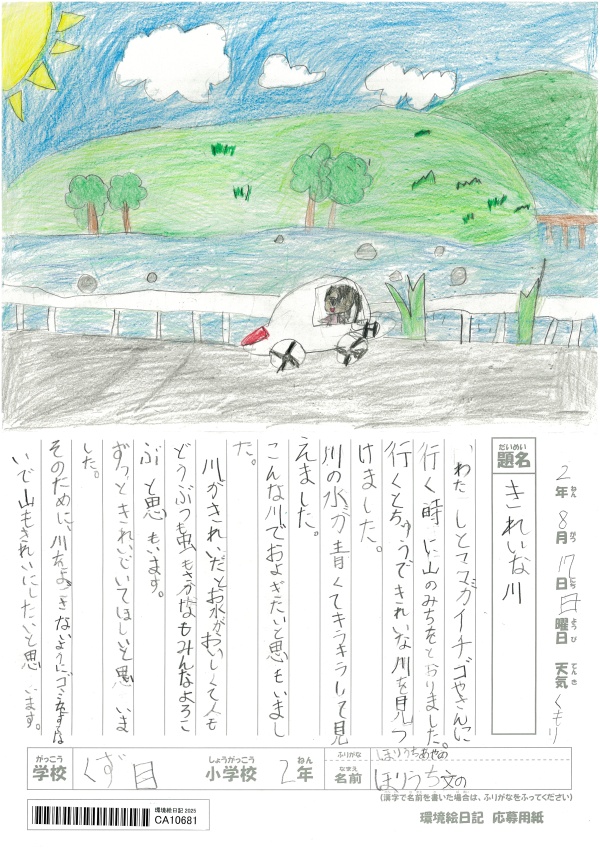 2年8月17日日曜日 天気くもり
ねん がつ にち ようび てんき
だいめい
題名 きれいな川
わたしとママがイナゴやさんに
行く時に山のみちをとおりました。
行くとちゅうできれいな川を見つ
けました。
川の水が青くてキラキラして見
えました。
こんな川でおよぎたいと思いまし
た。
川がきれいだとお水がおいしくて人も
どうぶつも虫もさかなもみんなよろこ
ぶと思もいます。
ずっときれいでいてほしいと思いま
した。
そのために、川をよごさないようにゴミをすてな
いで山もきれいにしたいと思います。
がっこう
学校 くず目
しょうがっこう
小学校 2年
ねん
ふりがな ほりうちあやの
なまえ
名前 ほりうち文の
(漢字で名前を書いた場合は、ふりがなをふってください)
環境絵日記 2025
CA10681
環境絵日記 応募用紙